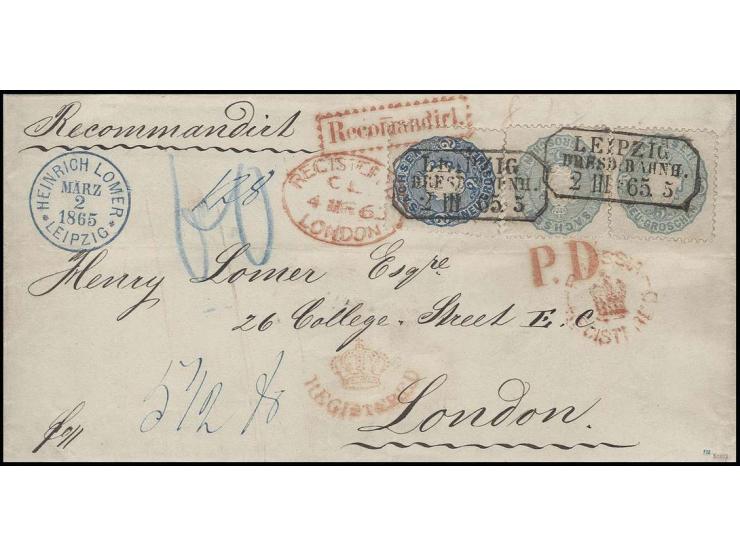 Recommandirt
Recommandirt.
HEINRICH LOMER
MÄRZ
2
1865
* LEIPZIG *
REGISTERED
4 MR 65
LONDON
LEIPZIG
DRESD. BAHNH.
2 III 65. 5
LEIPZIG
DRESD. BAHNH.
2 III 65. 5.
NEUGROSCHEN
128
P.D.
Henry Lomer Esqre
26 College. Street E. C.
REGISTERED
REGISTERED
5 1/2
London.